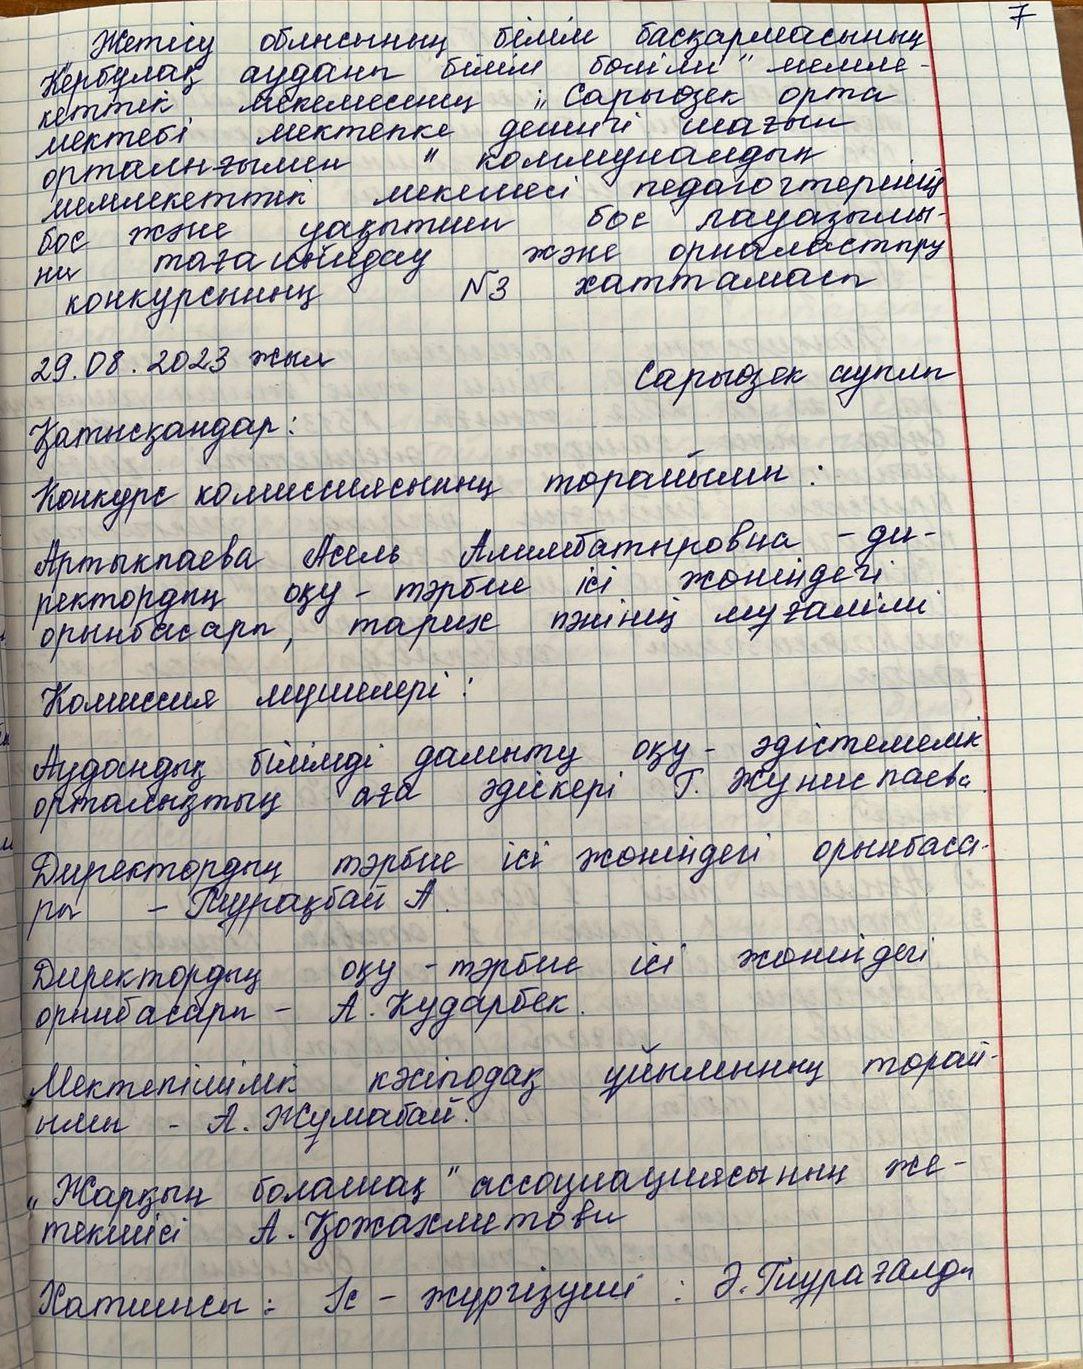 7
Жетісу облысының білім басқармасының
Кербұлақ ауданы білім бөлімі" мемле-
кеттік мекемесінің „Сарыөзек орта
мектебі мектепке дейінгі шағын
орталығымен" коммуналдық
мемлекеттік мекемесі педагогтерінің
бос және уақытша бос лауазымы-
на тағайындау және орналастыру
конкурсының №3 хаттамасы
29.08.2023 жыл
Сарыөзек ауылы
Қатысқандар:
Конкурс комиссиясының төрайымы:
Артыкпаева Асель Алимбатыровна - ди-
ректордың оқу - тәрбие ісі жөніндегі
орынбасары, тарих пәнінің мұғалімі
Комиссия мүшелері:
Аудандық білімді дамыту оқу - әдістемелік
орталықтың аға әдіскері Г. Жуниспаева
Директордың тәрбие ісі жөніндегі орынбаса-
ры - Тұрақбай А.
Директордың оқу - тәрбие ісі жөніндегі
орынбасары - А. Құдарбек.
Мектепішілік кәсіподақ ұйымының төрай-
ымы - А. Жұмабай.
„Жарқын болашақ" ассоциациясының же-
текшісі А. Қожахметова
Хатшысы: Іс - жүргізуші: Ә. Тұрағалды